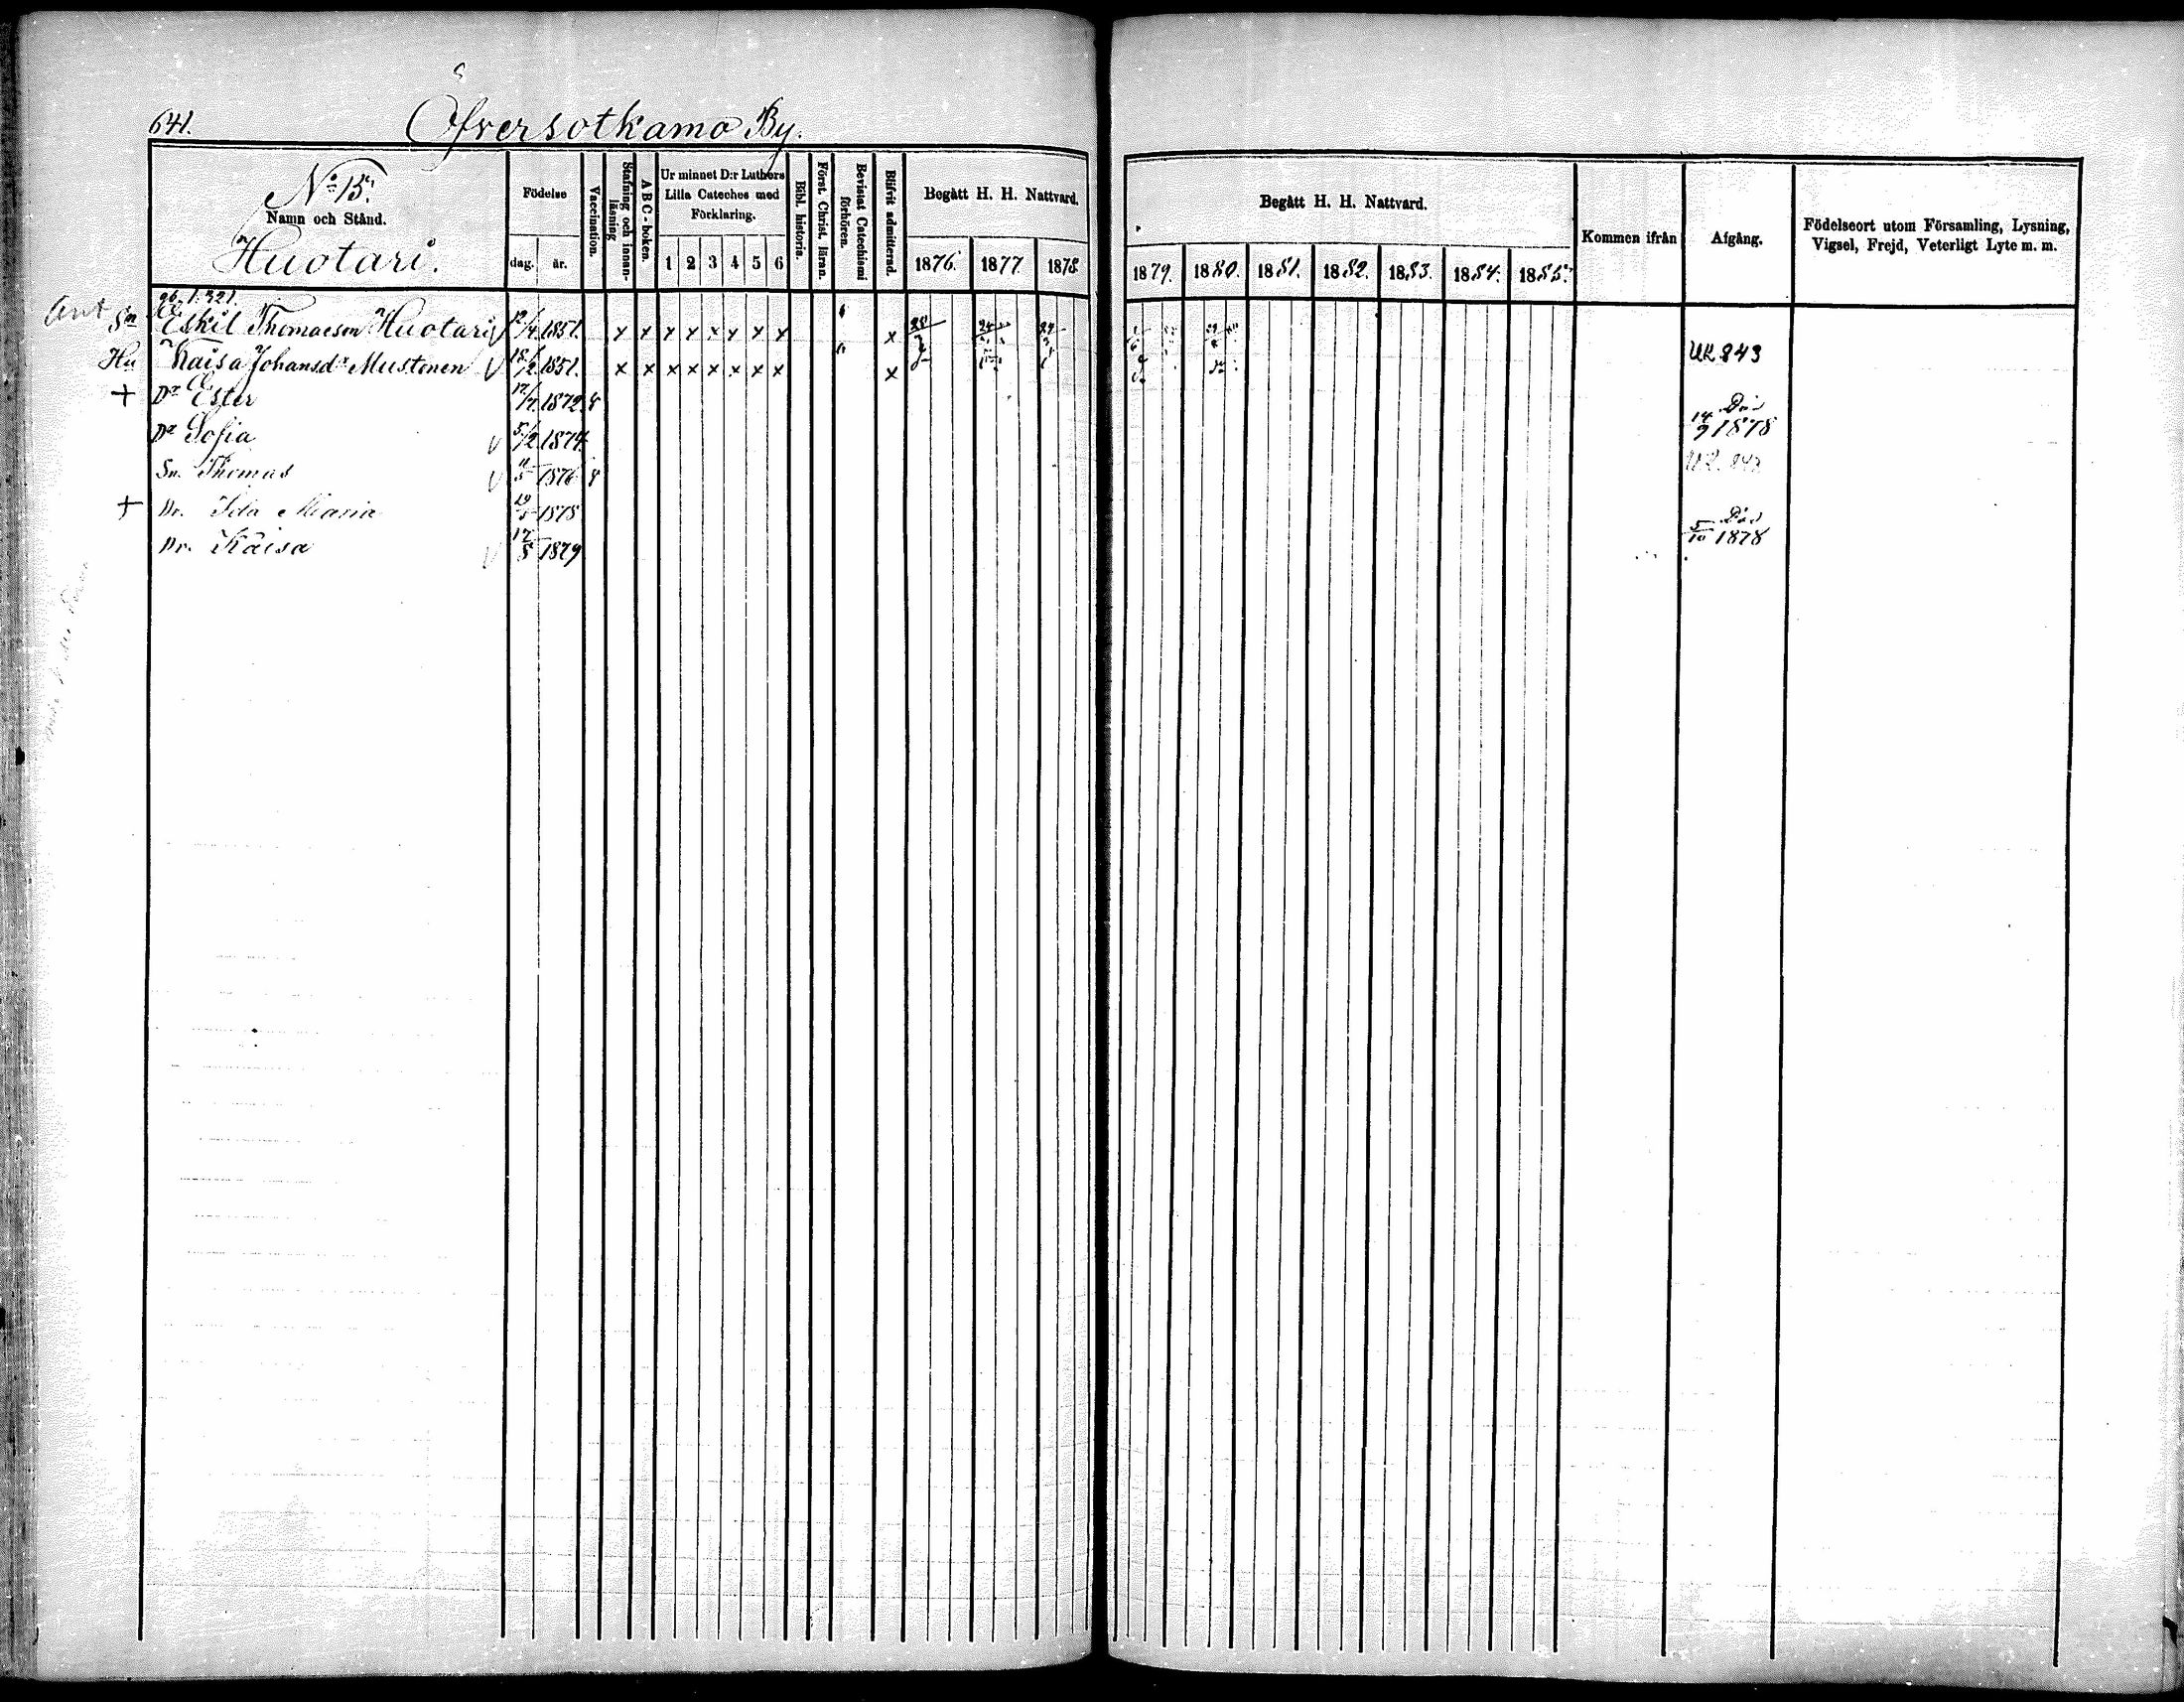 641.
Öfversotkamo By.
No 15.
Namn och Stånd.
Huotari.
Födelse
dag. år.
Vaccination.
Stafning och innanläsning
ABC-boken.
Ur minnet D:r Luthers Lilla Cateches med Förklaring.
1 2 3 4 5 6
Bibl. historia.
Först. Christ. läran.
Bevistat Catechismi förhören.
Blifvit admitterad.
Begått H. H. Nattvard.
1876. 1877. 1878
Begått H. H. Nattvard.
1879. 1880. 1881. 1882. 1883. 1884. 1885.
Kommen ifrån
Afgång.
Födelseort utom Församling, Lysning, Vigsel, Frejd, Veterligt Lyte m. m.
Sn Eskil Thomaeson Huotari V 12/4 1851. x x x x x x x x x
Hu Kaisa Johansdr Mustonen V 18/2 1851. x x x x x x x x x UK 843
+ Dr Ester 12/7 1872 Död 14/9 1878
Dr Sofia V 5/2 1874.
Sn. Thomas V 1876 UK. 843
+ Dr. Ida Maria 1878 Död 5/10 1878
Dr. Kaisa V 17/8 1879